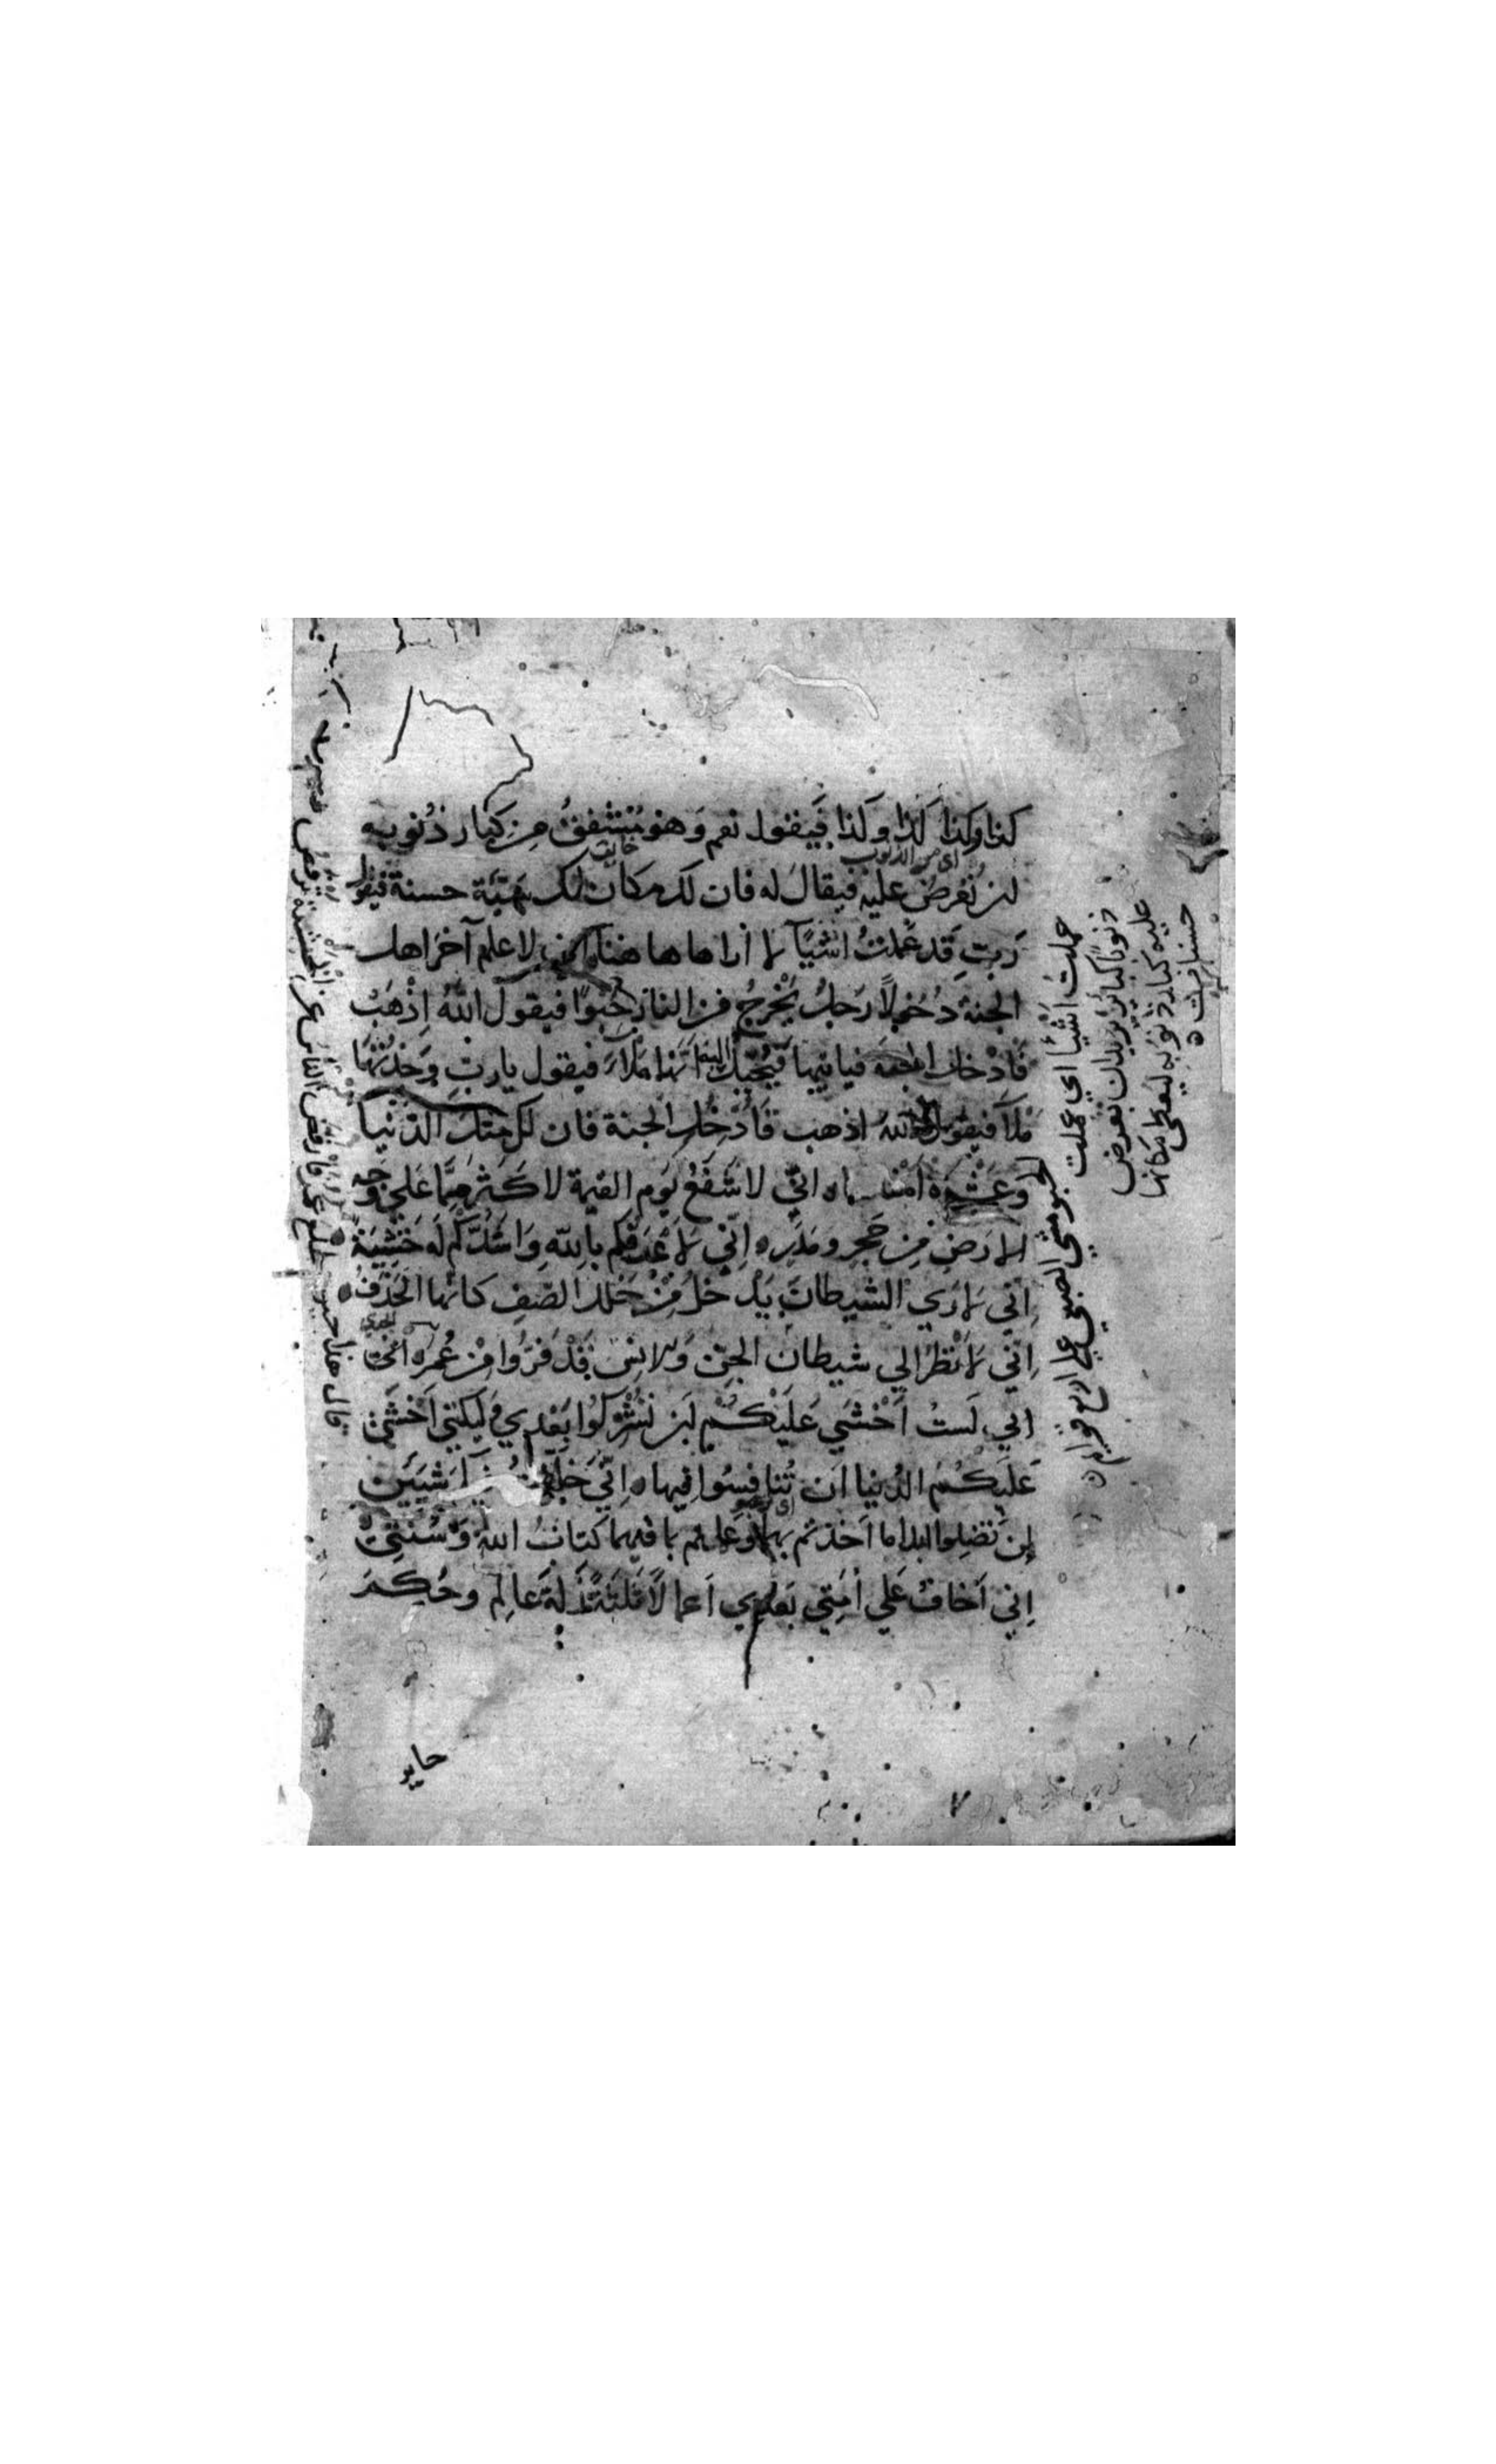 كذا وكذا كذا وكذا فيقول نعم وهو مشفق من كبار ذنوبه
اي من الذنوب
لن تعرض عليه فيقال له فان لك مكان كل سيئة حسنة فيقول
رب قد عملت اشيا لا اراها هاهنا اني لاعلم آخر اهل
الجنة دخولا رجل يخرج من النار حبوا فيقول الله اذهب
فادخل الجنة فياتيها فيخيل اليه انها ملآ فيقول يارب وجدتها
ملآ فيقول الله اذهب فادخل الجنة فان لك مثل الدنيا
وعشرة امثالها ه اني لاشفع يوم القيمة لاكثر مما على وجه
الارض من حجر ومدر ه اني لاعرفكم بالله واشدكم له خشية
اني لاري الشيطان يدخل من خلل الصف كانها الحذف
اني لانظر الي شيطان الجن والانس قد فروا من عمر ه
اني لست اخشي عليكم ان تشركوا بعدي ولكني اخشى
عليكم الدنيا ان تنافسوا فيها ه اني خلفت شيئين
لن تضلوا ابدا ما اخذتم بهما وعملتم بما فيهما كتاب الله وسنتي
اني اخاف علي امتي بعدي اعمالا ثلثة زلة عالم وحكم
جاير
عملت اشيا اي عملت
ذنوبا كبائر يريد ان تعرض
عليه كبار ذنوبه ليعطى مكانها
حسنات ه
الحبو مشي الصبي علي اربع قوايم ه
٧